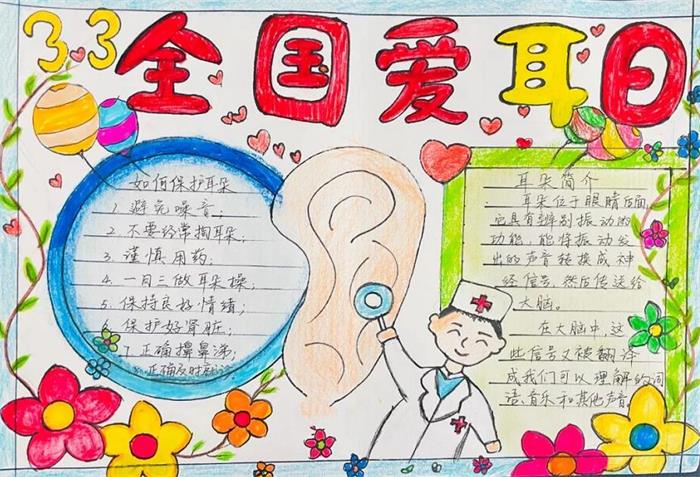 3 3 全国爱耳日
如何保护耳朵
1.避免噪音;
2.不要经常掏耳朵;
3.谨慎用药;
4.一日三做耳朵操;
5.保持良好情绪;
6.保护好肾脏;
7.正确擤鼻涕;
8.正确及时就诊
耳朵简介
耳朵位于眼睛后面,
它具有辨别振动的
功能,能将振动发
出的声音转换成神
经信号,然后传送给
大脑。
在大脑中,这
些信号又被翻译
成我们可以理解的词
语、音乐和其他声音。